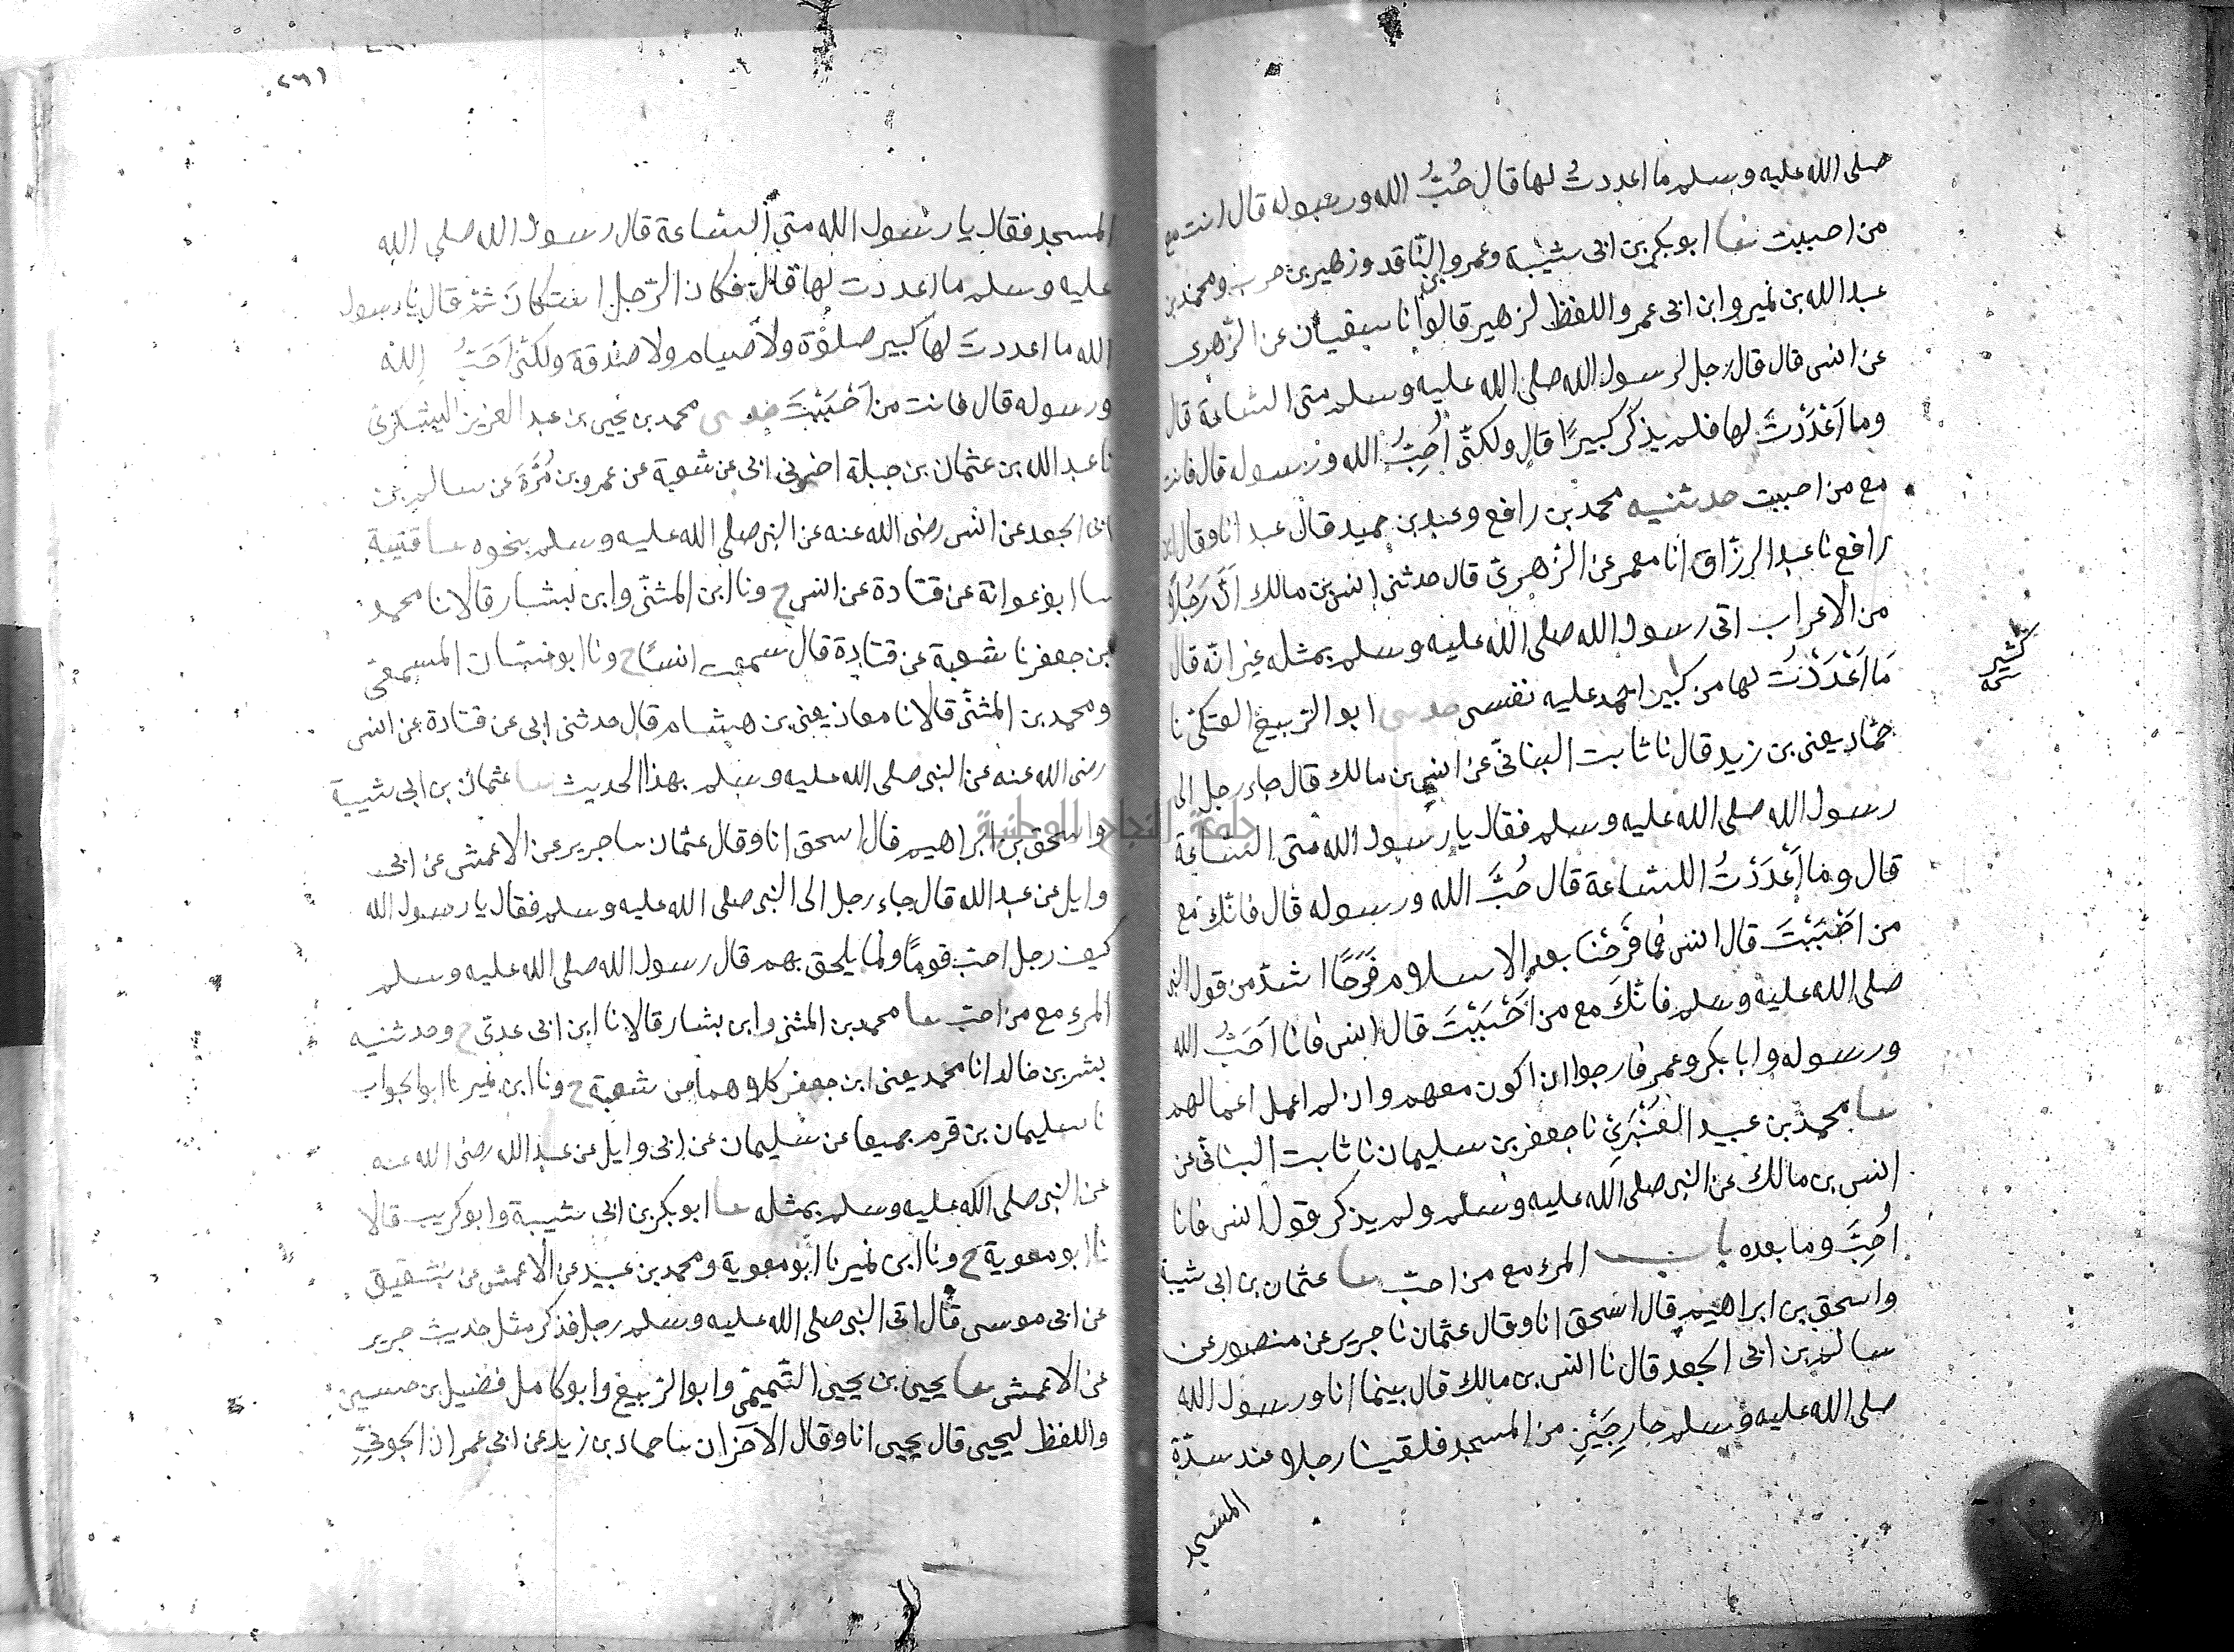 صلى الله عليه وسلم ما اعددت لها قال حُبُّ الله ورسوله قال انت مع
من احببت نا ابو بكر بن ابى شيبة وعمرو الناقد وزهير بن حرب ومحمد بن
عبد الله بن نمير وابن ابى عمر واللفظ لزهير قالوا نا سفيان عن الزهرى
عن انس قال قال رجل لرسول الله صلى الله عليه وسلم متى الساعة قال
وما اَعْدَدْتَ لها فلم يذكر كبيرًا قال ولكنّى اُحِبُّ الله ورسوله قال فانت
مع من احببت حدثنيه محمد بن رافع وعبد بن حميد قال عبد انا وقال ابن
رافع نا عبد الرزّاق انا معمر عن الزّهرىّ قال حدثنى انس بن مالك اَنَّ رَجُلاً
من الاعراب اتى رسول الله صلى الله عليه وسلم بمثله غير انّه قال
مَا اَعْدَدْتُ لها من كبير احمد عليه نفسى حدثنى ابو الرّبيع العتكىّ نا
كثير صح
حمّاد يعنى بن زيد قال نا ثابت البنانّى عن انس بن مالك قال جاء رجل الى
رسول الله صلى الله عليه وسلم فقال يا رسول الله متى السّاعة
قال وما اَعْدَدْتُ للسّاعة قال حُبَّ الله ورسوله قال فانّك مع
من اَحْبَبْتَ قال انس فما فَرِحْنَا بعد الاسلام فَرَحًا اشدّ من قول النبى
صلى الله عليه وسلم فانّكَ مع من اَحْبَبْتَ قال انس فانا اُحِبُّ الله
ورسوله وابا بكر وعمر فارجوا ان اكون معهم وان لم اعمل اعمالهم
نا محمد بن عبيد الغُبَرِىّ نا جعفر بن سليمان نا ثابت البنانّى عن
انس بن مالك عن النبى صلى الله عليه وسلم ولم يذكر قول انس فانا
اُحِبُّ وما بعده باب المرء مع من احبّ نا عثمان بن ابى شيبة
واسحق بن ابراهيم قال اسحق انا وقال عثمان نا جرير عن منصور عن
سالم بن ابى الجعد قال نا انس بن مالك قال بينما انا ورسول الله
صلى الله عليه وسلم خارِجَيْنِ من المسجد فلقينا رجلا عند سدّة
المسجد
٢٦١
المسجد فقال يا رسول الله متى السّاعة قال رسول الله صلى الله
عليه وسلم ما اعددت لها قال فكان الرّجل استكان ثمّ قال يا رسول
الله ما اعددت لها كبير صلوة ولا صيام ولا صدقة ولكنّى اُحِبُّ الله
ورسوله قال فانت مع من اَحْبَبْتَ حدثنى محمد بن يحيى بن عبد العزيز اليشكرىّ
نا عبد الله بن عثمان بن جبلة اخبرنى ابى عن شعبة عن عمرو بن مُرَّةَ عن سالم بن
ابى الجعد عن انس رضى الله عنه عن النبى صلى الله عليه وسلم بنحوه نا قتيبة
نا ابو عوانة عن قتادة عن انس ح ونا ابن المثنّى وابن بشار قالا نا محمد
بن جعفر نا شعبة عن قتادة قال سمعت انسًا ح ونا ابو غسّان المسمعى
ومحمد بن المثنّى قالا نا معاذ يعنى بن هشام قال حدثنى ابى عن قتادة عن انس
رضى الله عنه عن النبى صلى الله عليه وسلم بهذا الحديث نا عثمان بن ابى شيبة
واسحق بن ابراهيم قال اسحق انا وقال عثمان نا جرير عن الاعمش عن ابى
وايل عن عبد الله قال جاء رجل الى النبى صلى الله عليه وسلم فقال يا رسول الله
كيف رجل احبّ قومًا ولمّا يلحق بهم قال رسول الله صلى الله عليه وسلم
المرء مع من احبّ نا محمد بن المثنى وابن بشار قالا نا ابن ابى عدىّ ح وحدثنيه
بشر بن خالد انا محمد يعنى ابن جعفر كلاهما عن شعبة ح ونا ابن نمير نا ابو الجواب
نا سليمان بن قرم جميعا عن سليمان عن ابى وايل عن عبد الله رضى الله عنه
عن النبى صلى الله عليه وسلم بمثله نا ابو بكر بن ابى شيبة وابو كريب قالا
نا ابو معوية ح ونا ابن نمير نا ابو معوية ومحمد بن عبيد عن الاعمش عن شقيق
عن ابى موسى قال اتى النبى صلى الله عليه وسلم رجل فذكر مثل حديث جرير
عن الاعمش نا يحيى بن يحيى التّميمّى وابو الرّبيع وابو كامل فضيل بن حسين
واللفظ ليحيى قال يحيى انا وقال الآخران نا حماد بن زيد عن ابى عمران الجونىّ
جامعة النجاح الوطنية